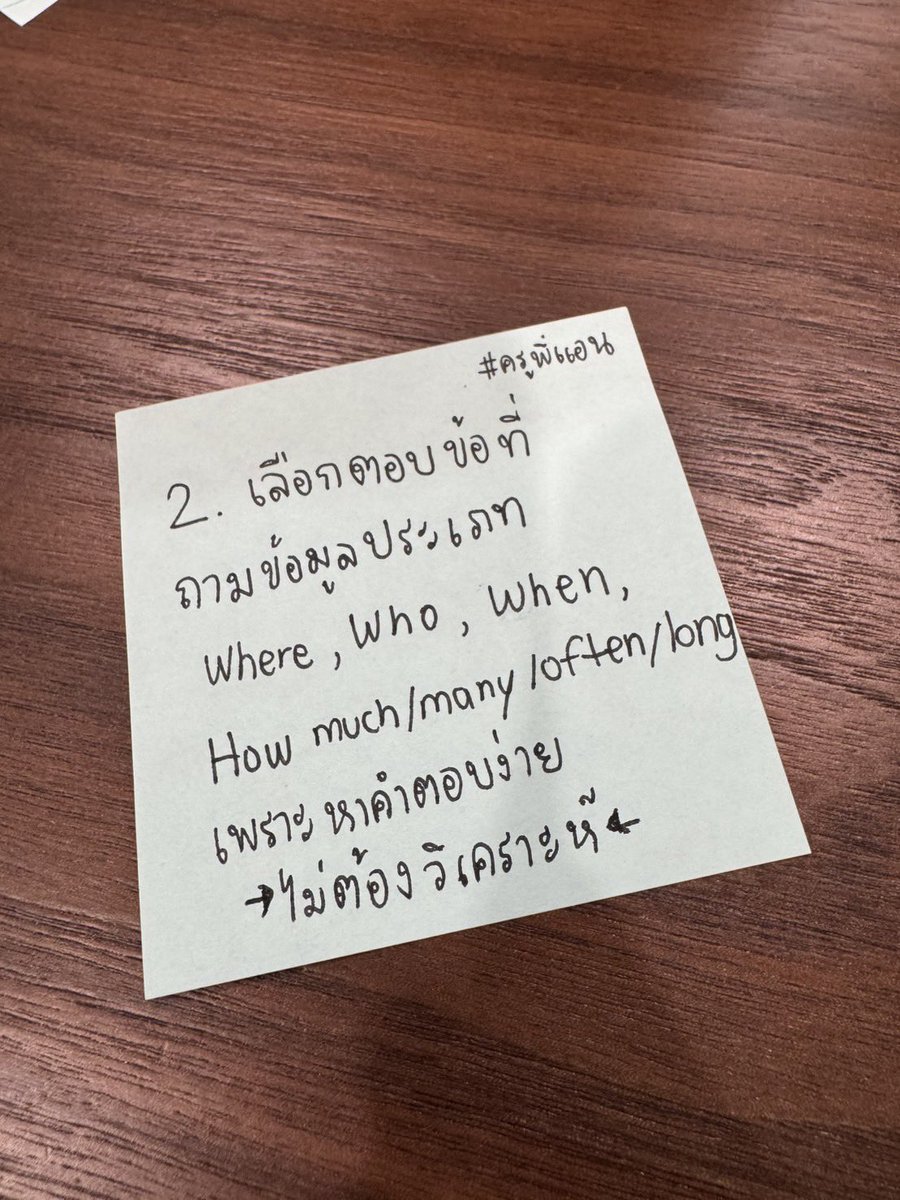 #ครูพี่แอน
2. เลือกตอบข้อที่
ถามข้อมูลประเภท
Where, Who, When,
How much/many/often/long
เพราะหาคำตอบง่าย
→ไม่ต้องวิเคราะห์←